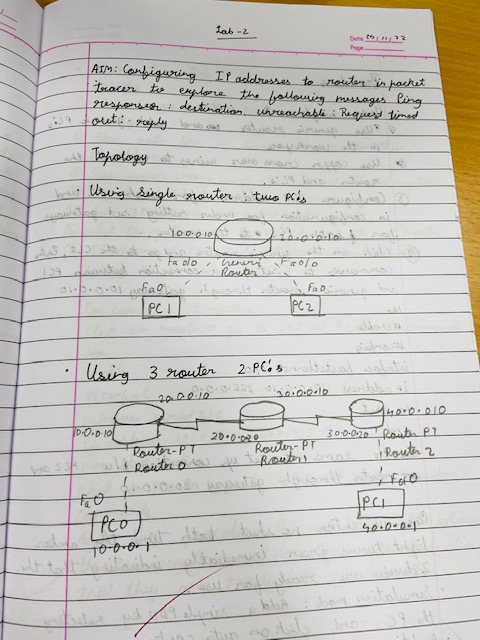 Lab-2
Date 25/11/22
Page
AIM: Configuring IP addresses to router in packet
tracer to explore the following messages Ping
responses: destination unreachable: Request timed
out: reply
Topology
Using single router: two PC's
10.0.0.10
20.0.0.10
Fa0/0 Generic Fa0/0
Router
Fa0
Fa0
PC1
PC2
Using 3 router 2 PC's
20.0.0.10
30.0.0.10
40.0.010
10.0.0.10
20.0.020
30.0.020
Router-PT
Router0
Router-PT
Router1
Router PT
Router 2
Fa0
Fa0
PC0
PC1
10.0.0.1
40.0.0.1